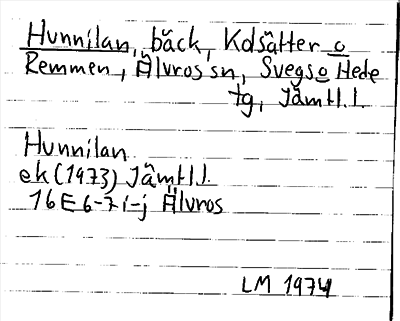 Hunnilan, bäck, Kolsätter o
Remmen, Älvros sn, Svegs o Hede
tg, Jämtl. l.
Hunnilan
ek (1973) Jämtl. l.
16E 6-7 i-j Älvros
LM 1974